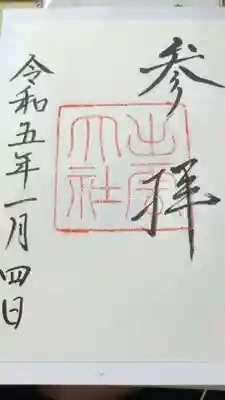 参拝
出雲
大社
令和五年一月四日